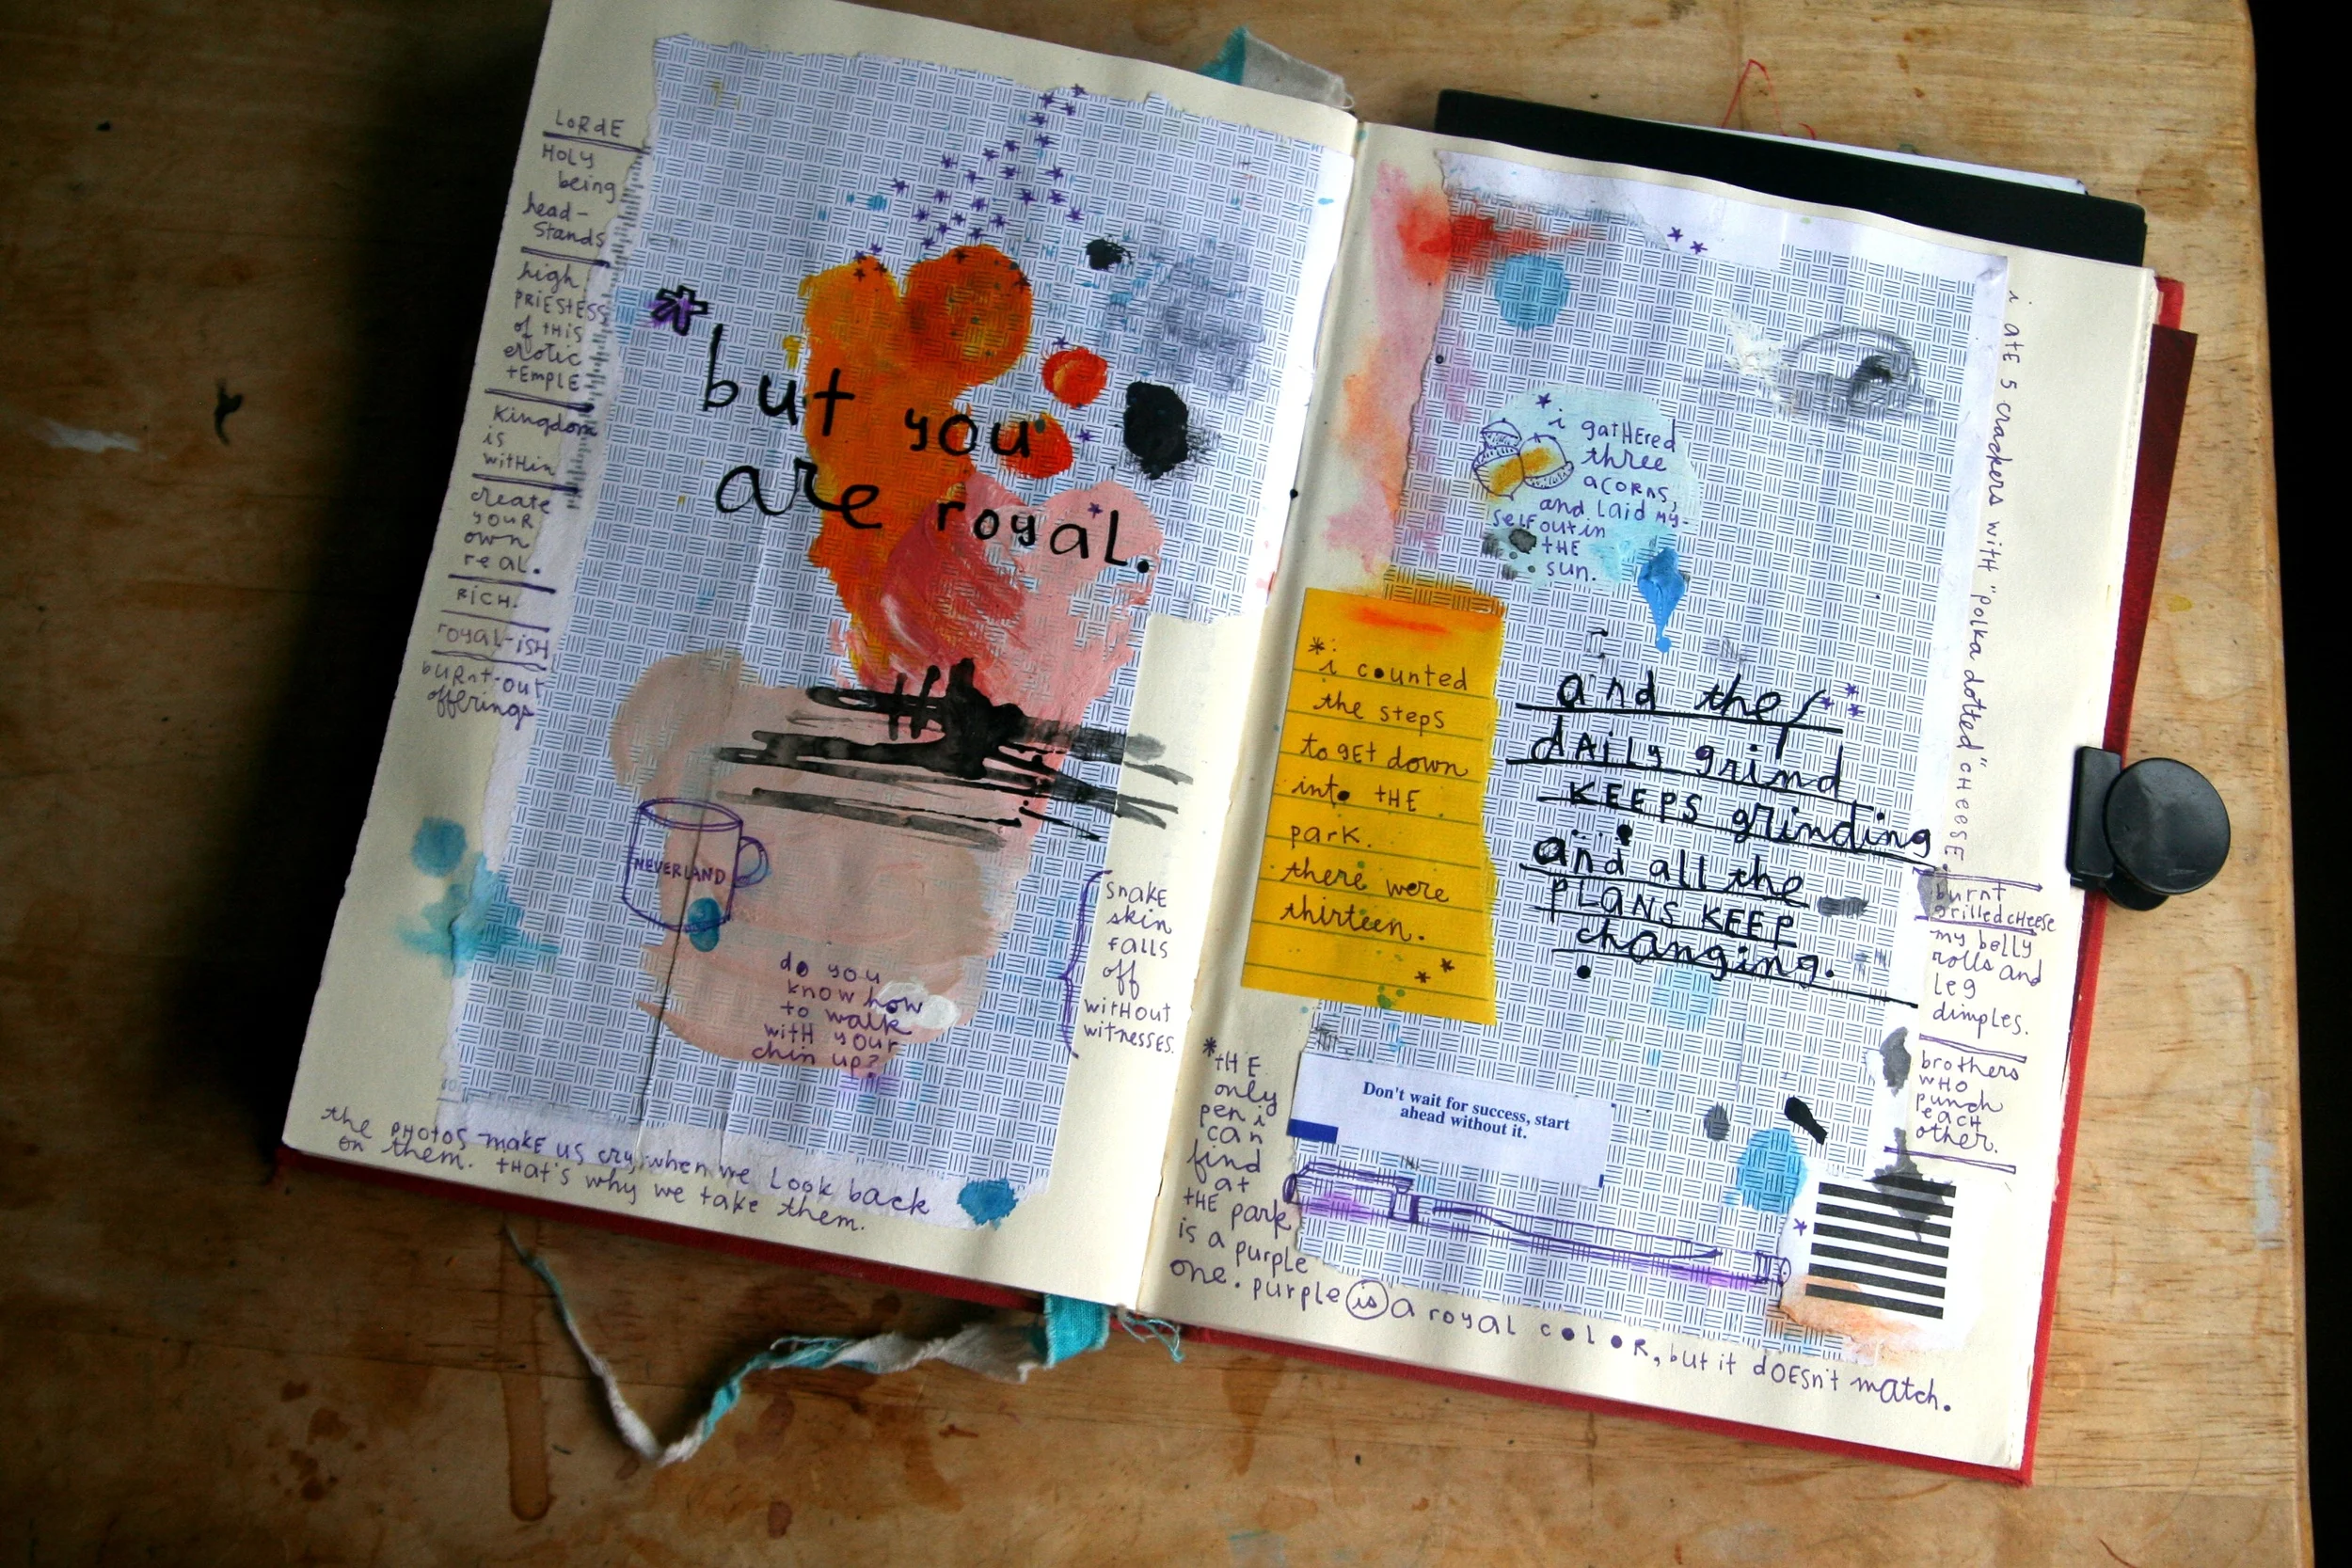 LORdE
HOLY
being
head-
stands
high
PRiESTESS
of tHiS
erotic
tEMPLE
Kingdom
is
witHin
create
youR
own
real.
RiCH.
royal-iSH
buRnt-out
offerings
*but you
are royal.
NEVERLAND
do you
know how
to walk
witH your
chin up?
snake
skin
falls
off
witHout
witnesses.
the PHOtOS make us cry when we Look back
on them. tHat's why we take them.
i gatHEred
three
acoRns,
and Laid my-
self out in
tHE
sun.
*i counted
the steps
to gEt down
into tHE
park.
there were
thirteen.
and the
dAiLy grind
KEEPS grinding
and all the
PLANS KEEP
changing.
Don't wait for success, start
ahead without it.
*tHE
only
pen i
can
find
at
tHE park
is a purple
one. purple is a royal coloR, but it dOESn't match.
i AtE 5 crackers with "polka dotted" cHEESE.
burnt
grilled cHeese
my belly
rolls and
Leg
dimples.
brothers
wHO
punch
each
other.